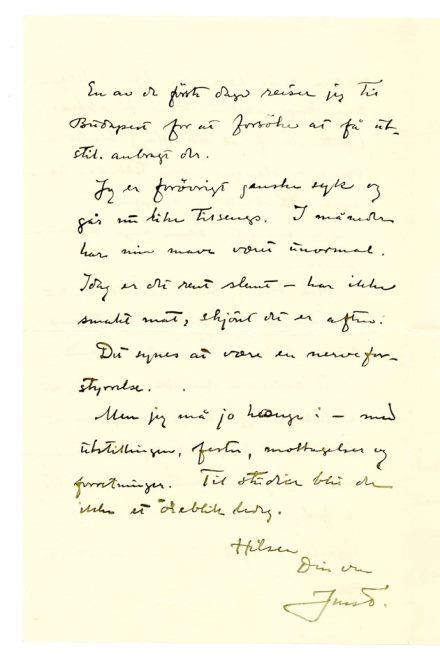 En av de første dage reiser jeg til
Budapest for at forsöke at få ut-
stil. anbragt der.
Jeg er forövrigt ganske syk og
går nu like tilsengs. I måneder
har min mave været unormal.
Idag er det rent slemt – har ikke
smakt mat, skjönt det er aften.
Det synes at være en nervefor-
styrrelse.
Men jeg må jo hænge i – med
utstillingen, fester, mottagelser og
forretninger. Til studier blir der
ikke et öieblik ledig.
Hilsen
Din ven